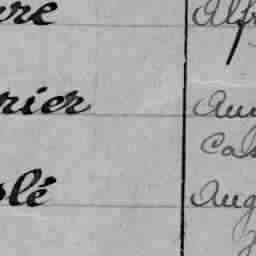 vre Alf
rier Au
Ca
olé Aug